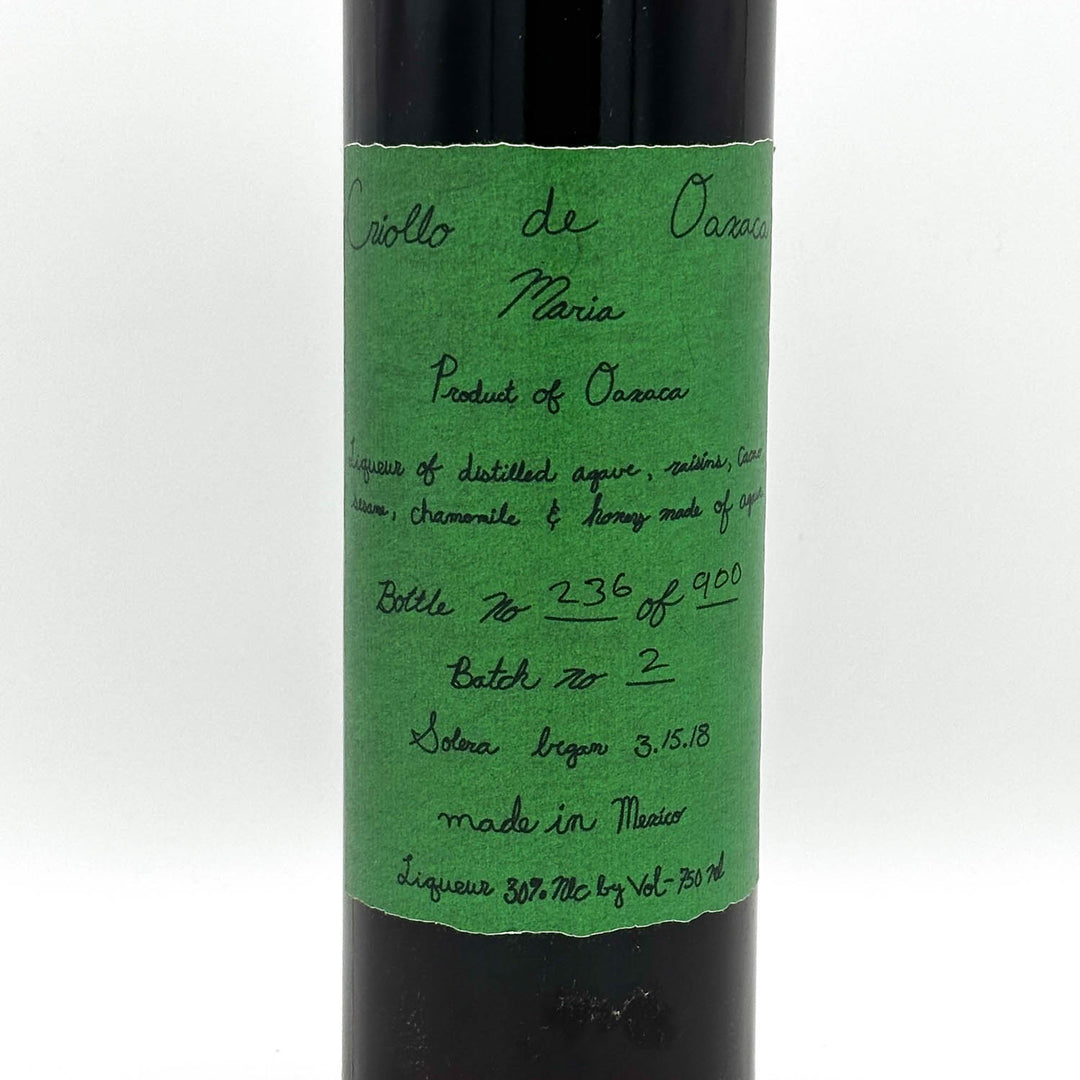 Criollo de Oaxaca
Maria
Product of Oaxaca
Liqueur of distilled agave, raisins, Cacao
sesame, chamomile & honey made of
Bottle no 236 of 900
Batch no 2
Solera began 3.15.18
made in Mexico
Liqueur 30% Alc by Vol-750 ml